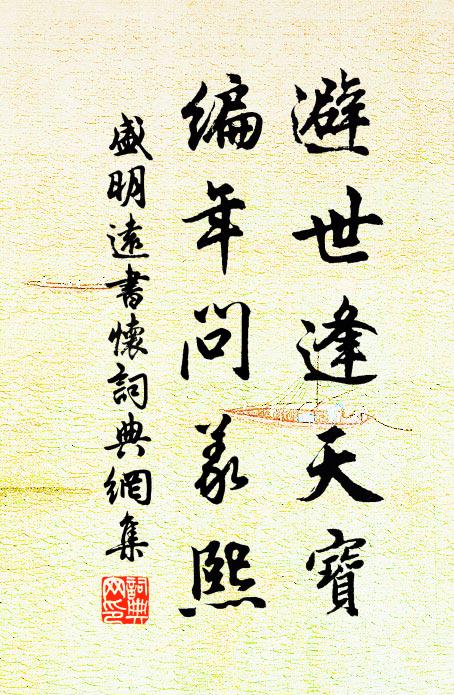 避世逢天寶
編年問義熙
盛明遠書懷詞典網集
詞典
网印